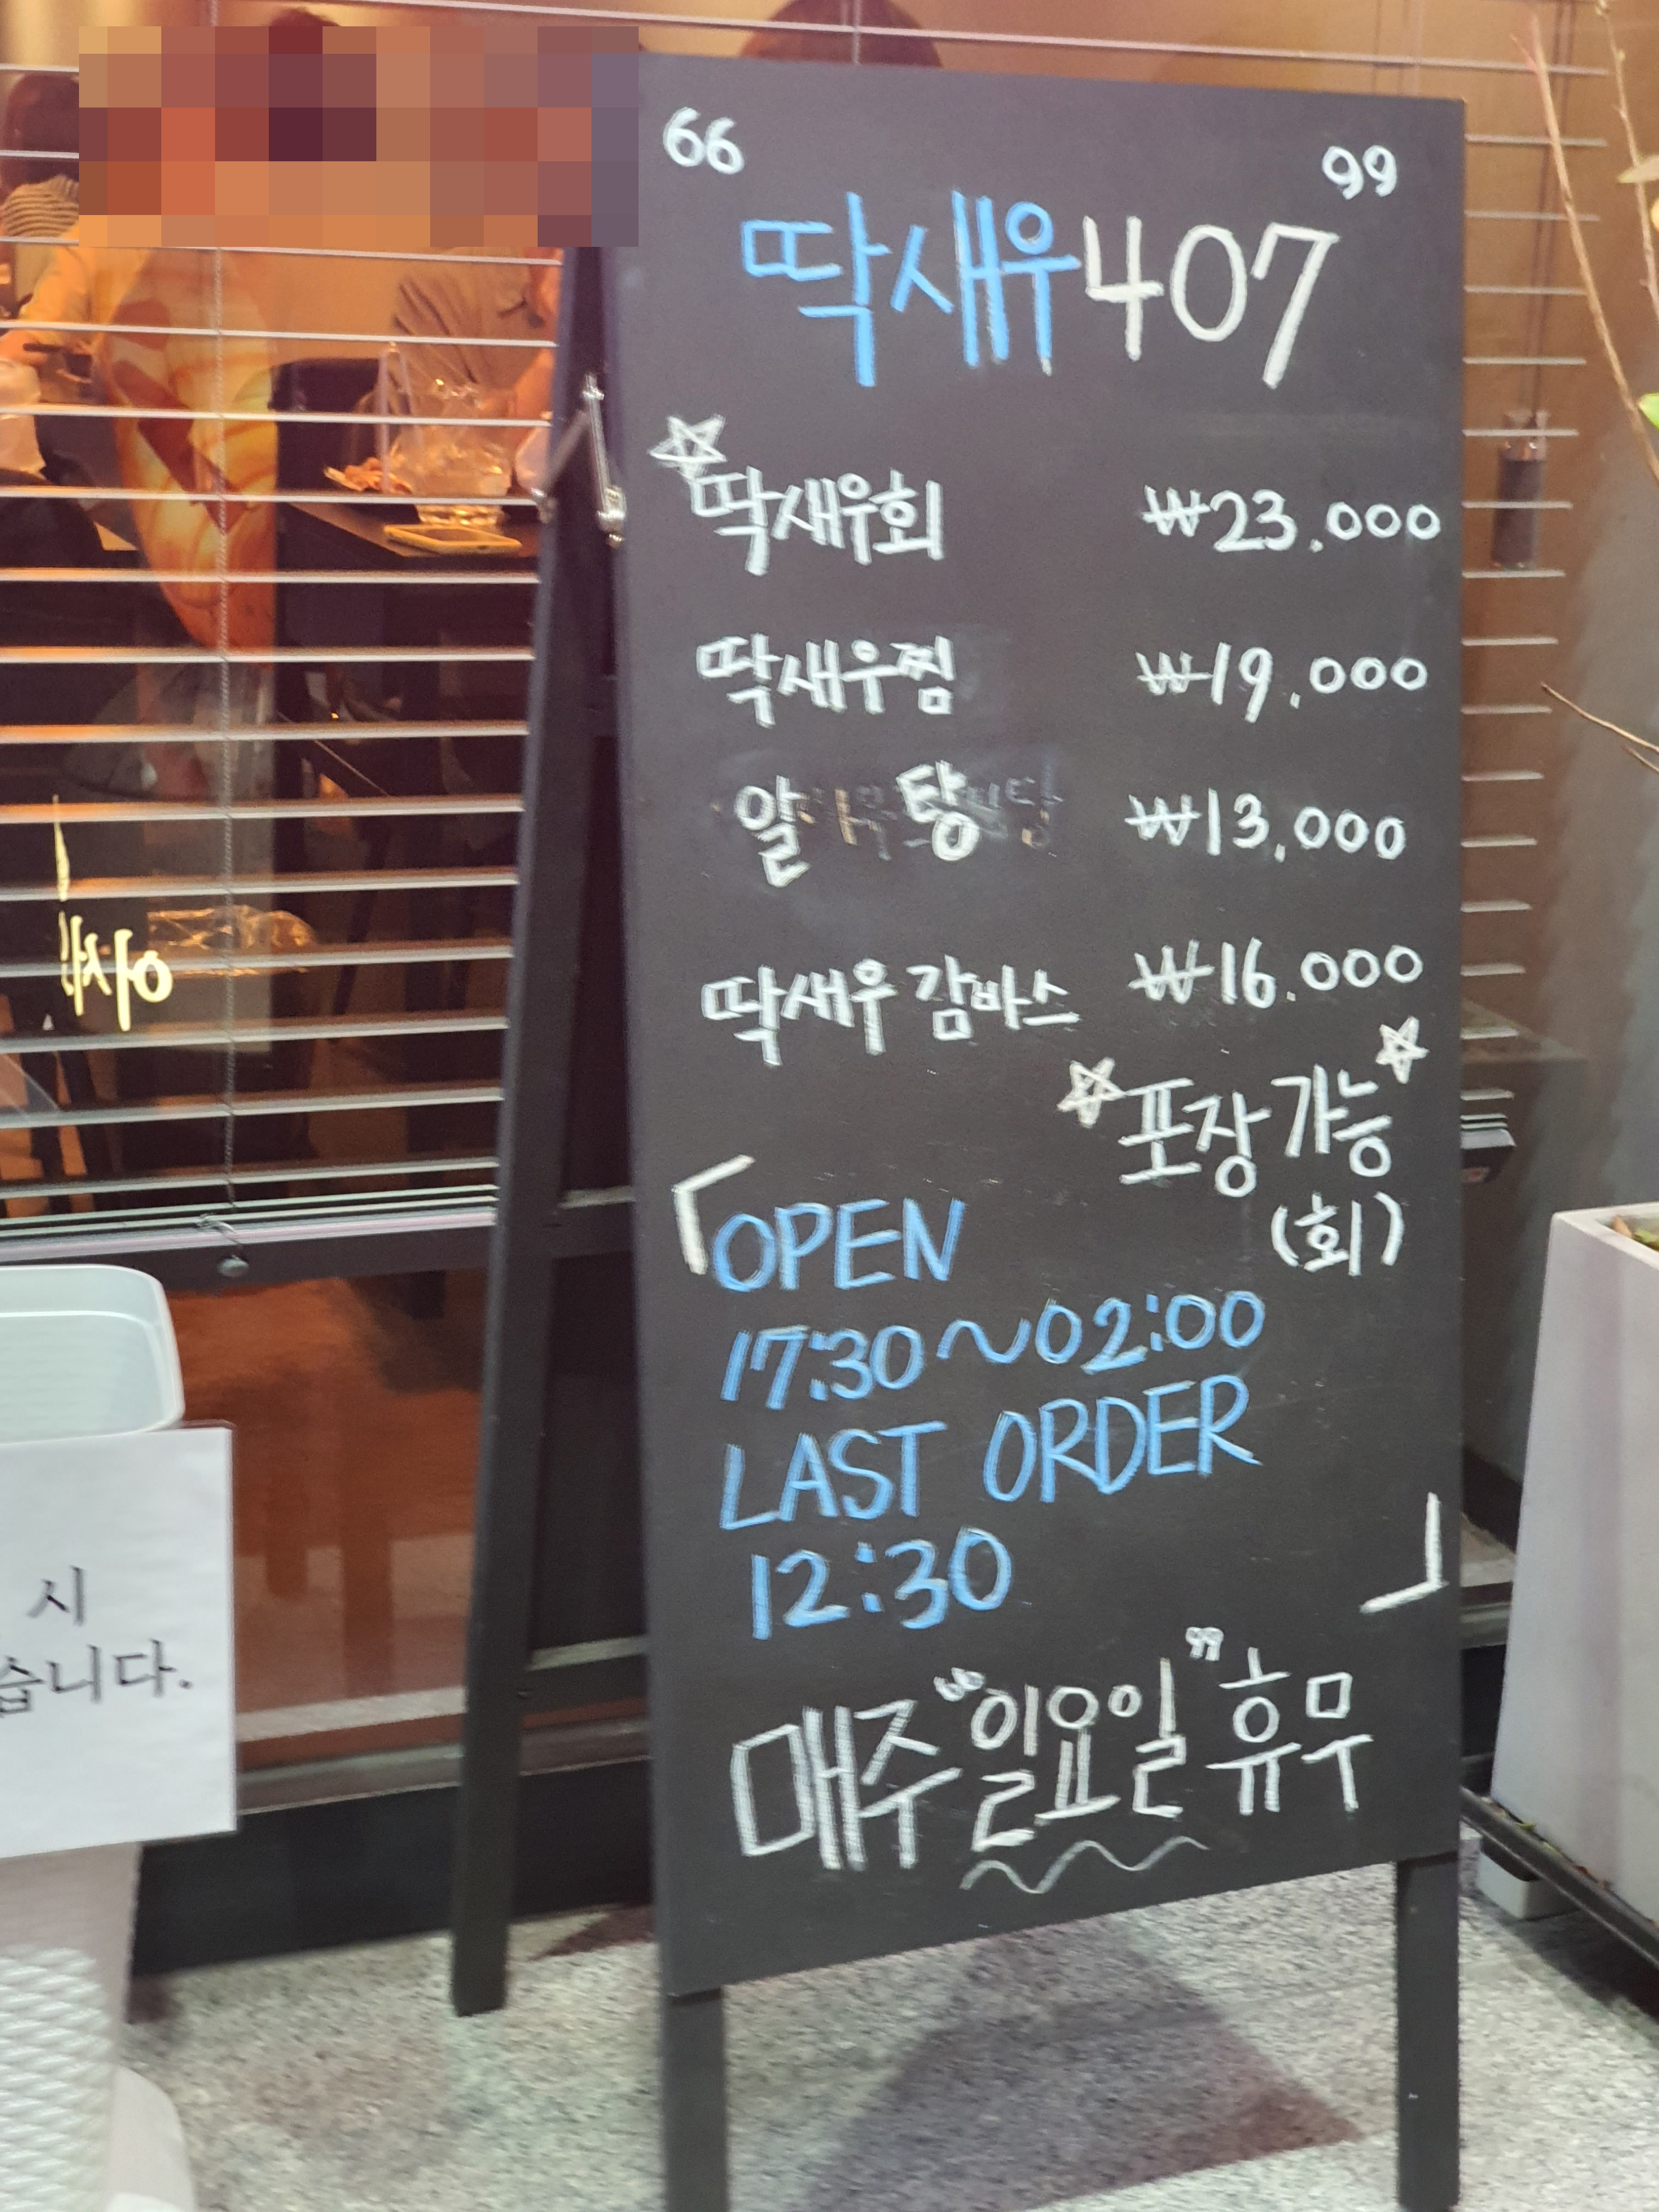 딱새우407
딱새우회 ₩23.000
딱새우찜 ₩19.000
알탕 ₩13,000
딱새우 감바스 ₩16.000
포장 가능
(회)
「OPEN
17:30~02:00
LAST ORDER
12:30」
매주 "일요일" 휴무
시
습니다.